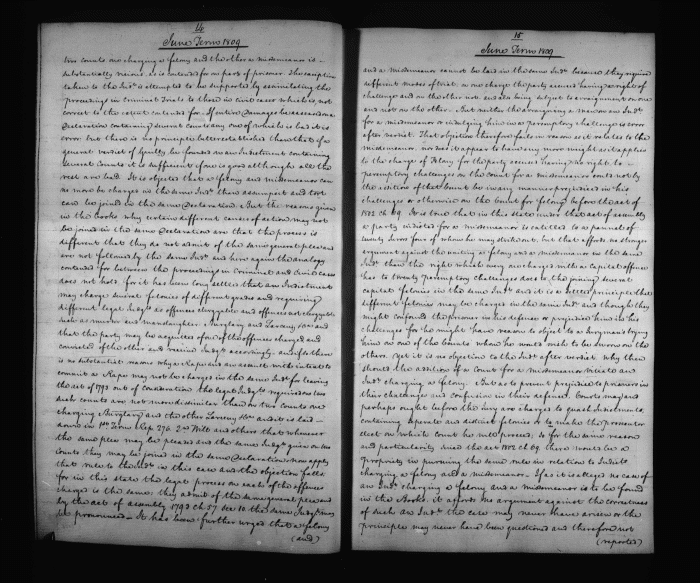 14
June Term 1809
two counts one charging a felony and the other a misdemeanor is
substantially vicious as is contended for on part of prisoner. The exception
taken to the Indt. is attempted to be supported by assimilating the
proceedings in Criminal Trials to those in civil cases which is not
correct to the extent contended for. If entire Damages be assessed on a
Declaration containing several counts any one of which is bad it is
error but there is no principle better established than that if a
general verdict of Guilty be found on an Indictment containing
several Counts it is sufficient if one is good although all the
rest are bad. It is objected that a felony and misdemeanor can
no more be charged in the same Indt. than assumpsit and tort
can be joined in the same Declaration. But the reasons given
in the books why certain different causes of action may not
be joined in the same Declaration are that the process is
different that they do not admit of the same general plea and
are not followed by the same Judt. and here again the analogy
contended for between the proceedings in Criminal and Civil cases
does not hold. for it has been long settled that an Indictment
may charge several felonies of different grades and requiring
different legal Judgts. as offences clergyable and offences not clergyable
such as murder and manslaughter. Burglary and Larceny &c. and
that the party may be acquitted of one of the offences charged and
convicted of the other and receive Judgt. accordingly. and if there
is no substantial reason why a Rape and an assault with intent to
commit a Rape may not be charged in the same Indt. for leaving
the act of 1793 out of consideration the legal Judgts. required on two
such counts are not more dissimilar than on two counts one
charging Burglary and the other Larceny &c. and it is laid
down in 1st. Term Rep 276. 2nd. Wils and others that whenever
the same plea may be pleaded and the same Judgt. given on two
Counts they may be joined in the same Declaration. now apply
that rule to the Indt. in this case and the objection falls
for in this state the legal process on each of the offences
charged is the same. they admit of the same general plea and
by the act of assembly 1793 ch 57 sec 10 the same Judgt. may
be pronounced. It has been further urged that a felony
(and)
15
June Term 1809
and a misdemeanor cannot be laid in the same Indt. because they require
different modes of trial. on one charge the party accused having a right of
challenge and on the other not and also being subject to arraignment on one
and not on the other. But neither the arraigning a man on an Indt.
for a misdemeanor or indulging him in a peremptory challenge is error
after verdict. That objection therefore fails in reason as it relates to the
misdemeanor. nor does it appear to have any more might as it applies
to the charge of felony for the party accused having no right to a
peremptory challenge on the count for a misdemeanor could not by
the addition of that Count be in any manner prejudiced in his
challenges or otherwise on the Count for felony before the act of
1802 ch 69. It is true that in this state under that act of assembly
a party indicted for a misdemeanor is entitled to a pannel of
twenty Jurors four of whom he may strike out. but that affords no stronger
argument against the uniting a felony and a misdemeanor in the same
Indt. than the right which every one charged with a Capital offence
has to twenty peremptory challenges does to the joining several
capital felonies in the same Indt. and it is a settled principle that
different felonies may be charged in the same Indt. and though they
might confound the prisoner in his defence or prejudice him in his
challenges for he might have reason to object to a Juryman's trying
him on one of the Counts when he would wish to be sworn on the
others. yet it is no objection to the Indt. after verdict. why then
should the addition of a Count for a misdemeanor vitiate an
Indt. charging a felony. But as to prevent prejudice to prisoners in
their challenges and confusion in their defences. Courts may and
perhaps ought before the Jury are charged to quash Indictments
containing separate and distinct felonies or to make the prosecutor
elect on which Count he will proceed. so for the same reason
and particularly since the act 1802 ch 69. there would be a
propriety in pursuing the same rule in relation to Indicts.
charging a felony and a misdemeanor. If as it is alleged no case of
an Indt. charging a felony and a misdemeanor is to be found
in the Books. it affords no argument against the correctness
of such an Indt. the case may never have arisen or the
principle may never have been questioned and therefore not
(reported)